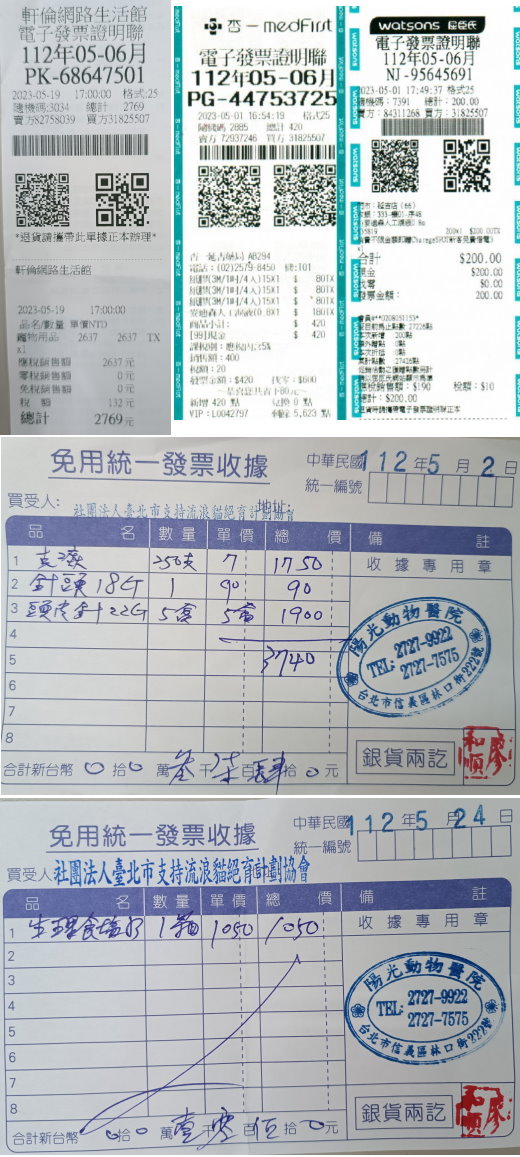 軒倫網路生活館
電子發票證明聯
112年05-06月
PK-68647501
2023-05-19 17:00:00 格式:25
隨機碼:3034 總計 2769
賣方82758039 買方31825507
*退貨請攜帶此單據正本辦理*
軒倫網路生活館
2023-05-19 17:00:00
品名/數量 單價(NTD)
寵物用品 2637 2637 TX
x1
應稅銷售額 2637 元
零稅銷售額 0 元
免稅銷售額 0 元
稅 額 132 元
總計 2769 元
杏一 medFirst
電子發票證明聯
112年05-06月
PG-44753725
2023-05-01 16:54:19 格式25
隨機碼 2885 總計 420
賣方 72937246 買方 31825507
杏一延吉藥局 AB294
電話：(02)2579-8450 機:T01
(3M/1吋/4入)15X1 $ 80TX
(3M/1吋/4入)15X1 $ 80TX
(3M/1吋/4入)15X1 $ 80TX
$ 180TX
商品小計： $ 420
[99]現金 $ 420
課稅別：應稅內含5%
銷售額：400
稅額：20
發票金額：$420 找零：$600
新增 420 點 兌換 0 點
VIP：L0042797 剩餘 5,623 點
watsons 屈臣氏
電子發票證明聯
112年05-06月
NJ-95645691
2023-05-01 17:49:37 格式25
隨機碼：7391 總計：200.00
賣方：84311268 買方：31825507
200x1 $200.00TX
合計 $200.00
現金 $200.00
找零 $0.00
發票金額： 200.00
應稅銷售額：$190 稅額：$10
總計：$200.00
退貨時請攜帶電子發票證明聯正本
免用統一發票收據
中華民國 112年5月2日
統一編號
買受人： 社團法人臺北市支持流浪貓絕育計劃協會
地址：
品名 數量 單價 總價 備註
1 250支 7 1750
2 針頭18G 1 90 90
3 頭皮針22G 5盒 1900
4
5 3740
6
7
8
收據專用章
陽光動物醫院
TEL: 2727-9922
2727-7575
台北市信義區林口街222號
合計新台幣 0 拾 0 萬 參 千 柒 百 肆 拾 0 元
銀貨兩訖
廖和順
免用統一發票收據
中華民國 112年5月24日
統一編號
買受人 社團法人臺北市支持流浪貓絕育計劃協會
品名 數量 單價 總價 備註
1 生理食塩水 1箱 1050 1050
2
3
4
5
6
7
8
收據專用章
陽光動物醫院
TEL: 2727-9922
2727-7575
台北市信義區林口街222號
合計新台幣 0 拾 0 萬 壹 千 零 百 伍 拾 0 元
銀貨兩訖
廖和順